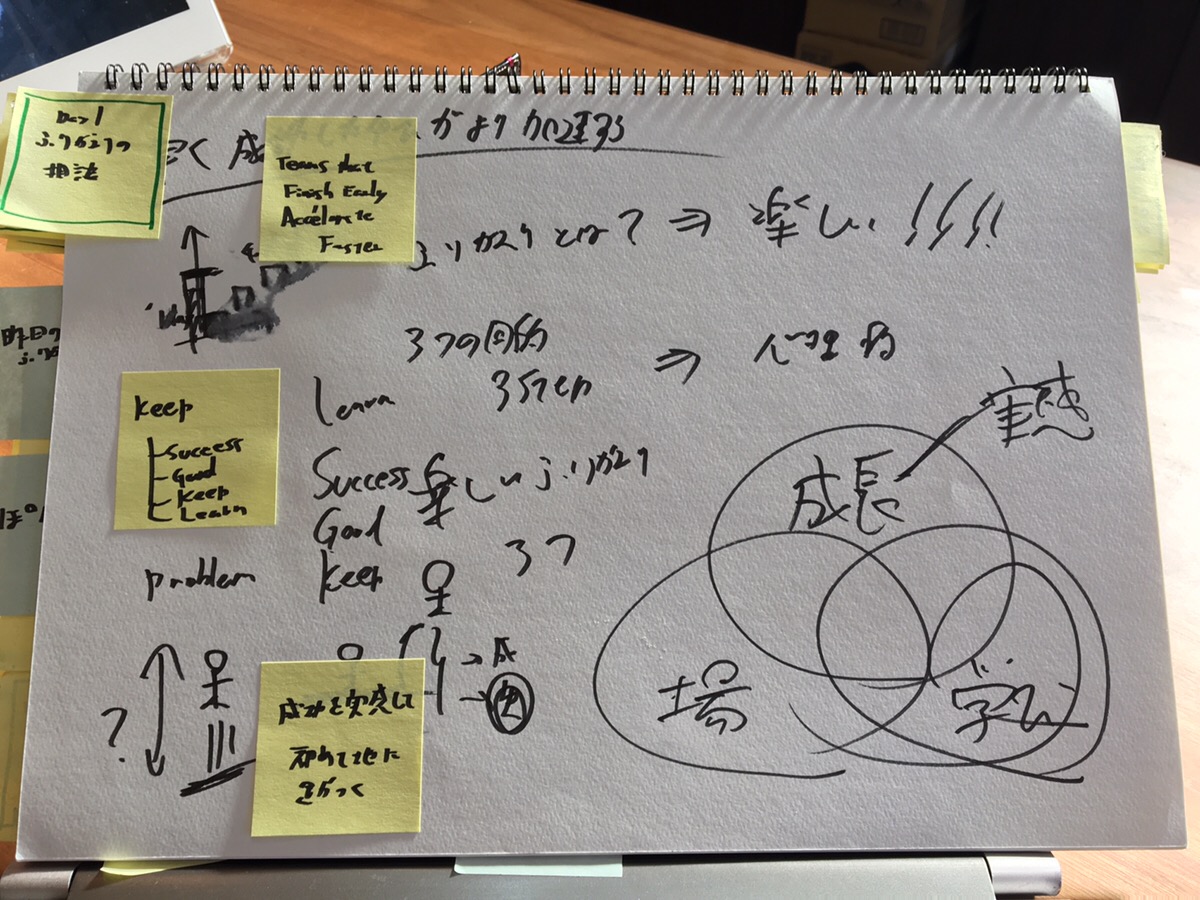 Day 1
ふりかえりの
早く成
がより加速する
Teams that
Finish Early
Accelerate
Faster
ふりかえりとは? ⇒ 楽しい!!!!
3つの目的
⇒ 心理的
3 Step
Learn
keep
Success
Good
Keep
Learn
Success
楽しいふりかえり
Good
3つ
problem
keep
実感
成長
場
学び
→ 成
→ 失
?
成功を実感して
初めて
きづく
昨日の